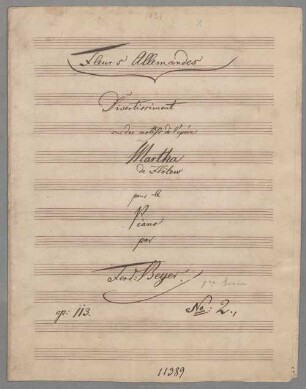 Fleurs Allemandes
Divertissiment
sur des motifs de l'opéra
Martha
de Flotow
pour le
Piano
par
Ferd: Beyer.
op: 113. No: 2.
11389